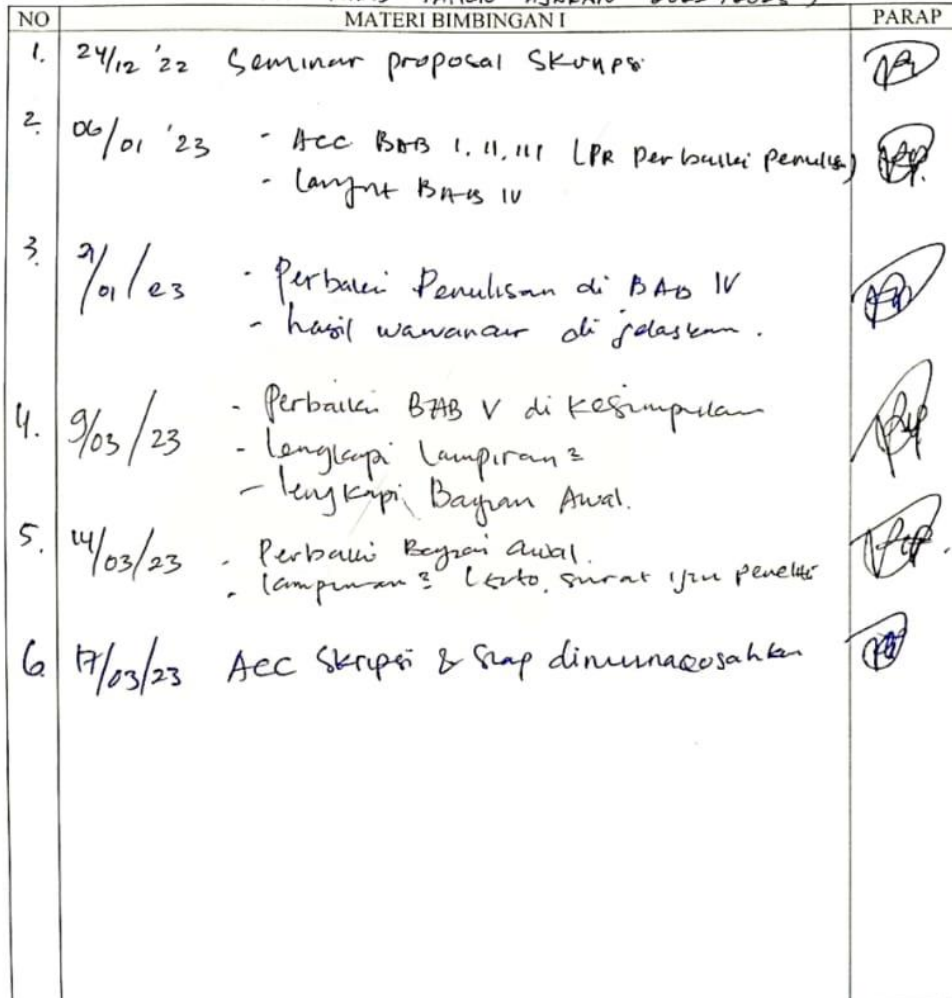 TAHUN AJARAN 2022/2023)
NO MATERI BIMBINGAN I PARAP
1. 24/12 '22 Seminar proposal Skripsi
2. 06/01 '23 - Acc BAB I, II, III (PR Perbaiki Penulisan)
- Lanjut BAB IV
3. /01/23 - Perbaiki Penulisan di BAB IV
- hasil wawancara di jelaskan.
4. 9/03/23 - Perbaiki BAB V di Kesimpulan
- Lengkapi Lampiran²
- lengkapi Bagian Awal.
5. 14/03/23 - Perbaiki Bagian awal.
- lampiran² surat ijin peneliti
6. 17/03/23 Acc Skripsi & Siap dimunaqosahkan